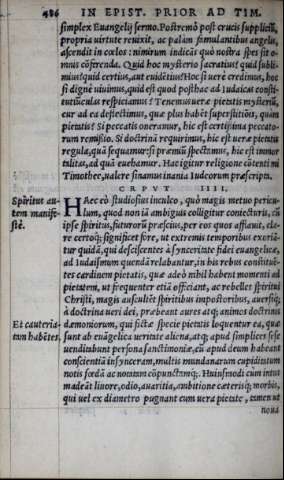 486 IN EPIST. PRIOR AD TIM.
simplex Euangelij sermo. Postremò post crucis supplicium,
propria uirtute reuixit, ac palàm stimulantibus angelis,
ascendit in cœlos: nimirum indicās quò nostra spes sit o-
mnis cōferenda. Quid hoc mysterio sacratius? quid subli-
mius? quid certius, aut euidētius? Hoc si uerè credimus, hoc
si dignè uiuimus, quid est quod posthac ad Iudaicas consti-
tutiūculas respiciamus? Tenemus ueræ pietatis mysteriū,
cur ad ea deflectimus, quæ plus habēt superstitiōis, quàm
pietatis? Si peccatis onerantur, hic est certissima peccato-
rum remissio. Si doctrina requirimus, hic est ueræ pietatis
regula, quā sequamur: si præmiū spectamus, hic est immor
talitas, ad quā euehamur. Hac igitur religione cōtenti mi
Timothee, ualere sinamus inania Iudæorum præscripta.
CAPVT IIII.
Spiritus au-
tem manife-
stè.
Hæc eò studiosius inculco, quò magis metuo pericu-
lum, quod non iā ambiguis colligitur coniecturis, cū
ipse spiritus, futurorū præscius, per eos quos afflauit, cla-
rè certoq́; significet fore, ut extremis temporibus exoriā-
tur quidā, qui desciscentes à synceritate fidei euangelicæ,
ad Iudaismum quendā relabantur, in his rebus constituē-
tes cardinem pietatis, quæ adeò nihil habent momenti ad
pietatem, ut frequenter etiā officiant, ac rebelles spiritui
Christi, magis auscultēt spiritibus impostoribus, auersiq́;
à doctrina ueri dei, præbeant aures atq; animos doctrinis
dæmoniorum, qui fictæ specie pietatis loquentur ea, quæ
Et cauteria-
tam habētes.
sunt ab euāgelica ueritate aliena, atq; apud simplices sese
uenditabunt persona sanctimoniæ, cū apud deum habeant
conscientiā insynceram, multis mundanarum cupiditatum
notis fœdā ac nouum cōpunctamq́;. Huiusmodi cum intus
madeāt liuore, odio, auaritia, ambitione cæterisq́; morbis,
qui uel ex diametro pugnant cum uera pietate, tamen ut
noua